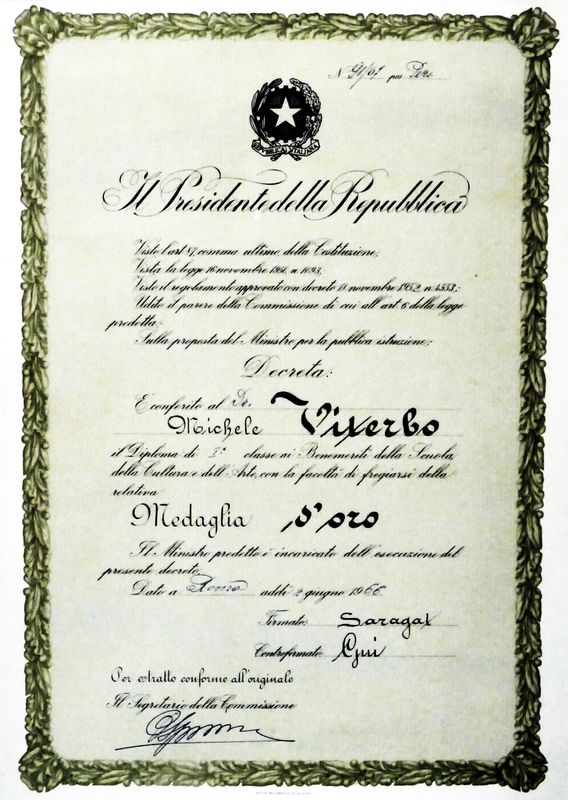 N. 91/67 pos Pers.
REPVBBLICA ITALIANA
Il Presidente della Repubblica
Visto l'art. 87, comma ultimo, della Costituzione;
Vista la legge 16 novembre 1950, n. 1093;
Visto il regolamento approvato con decreto 18 novembre 1952, n. 4553;
Udito il parere della Commissione di cui all'art. 6 della legge
predetta;
Sulla proposta del Ministro per la pubblica istruzione;
Decreta:
È conferito al Dr.
Michele Viterbo
il Diploma di I^a classe ai Benemeriti della Scuola,
della Cultura e dell'Arte, con la facoltà di fregiarsi della
relativa
Medaglia d'oro
Il Ministro predetto è incaricato dell'esecuzione del
presente decreto.
Dato a Roma addì 2 giugno 1966
Firmato: Saragat
Controfirmato: Gui
Per estratto conforme all'originale
Il Segretario della Commissione